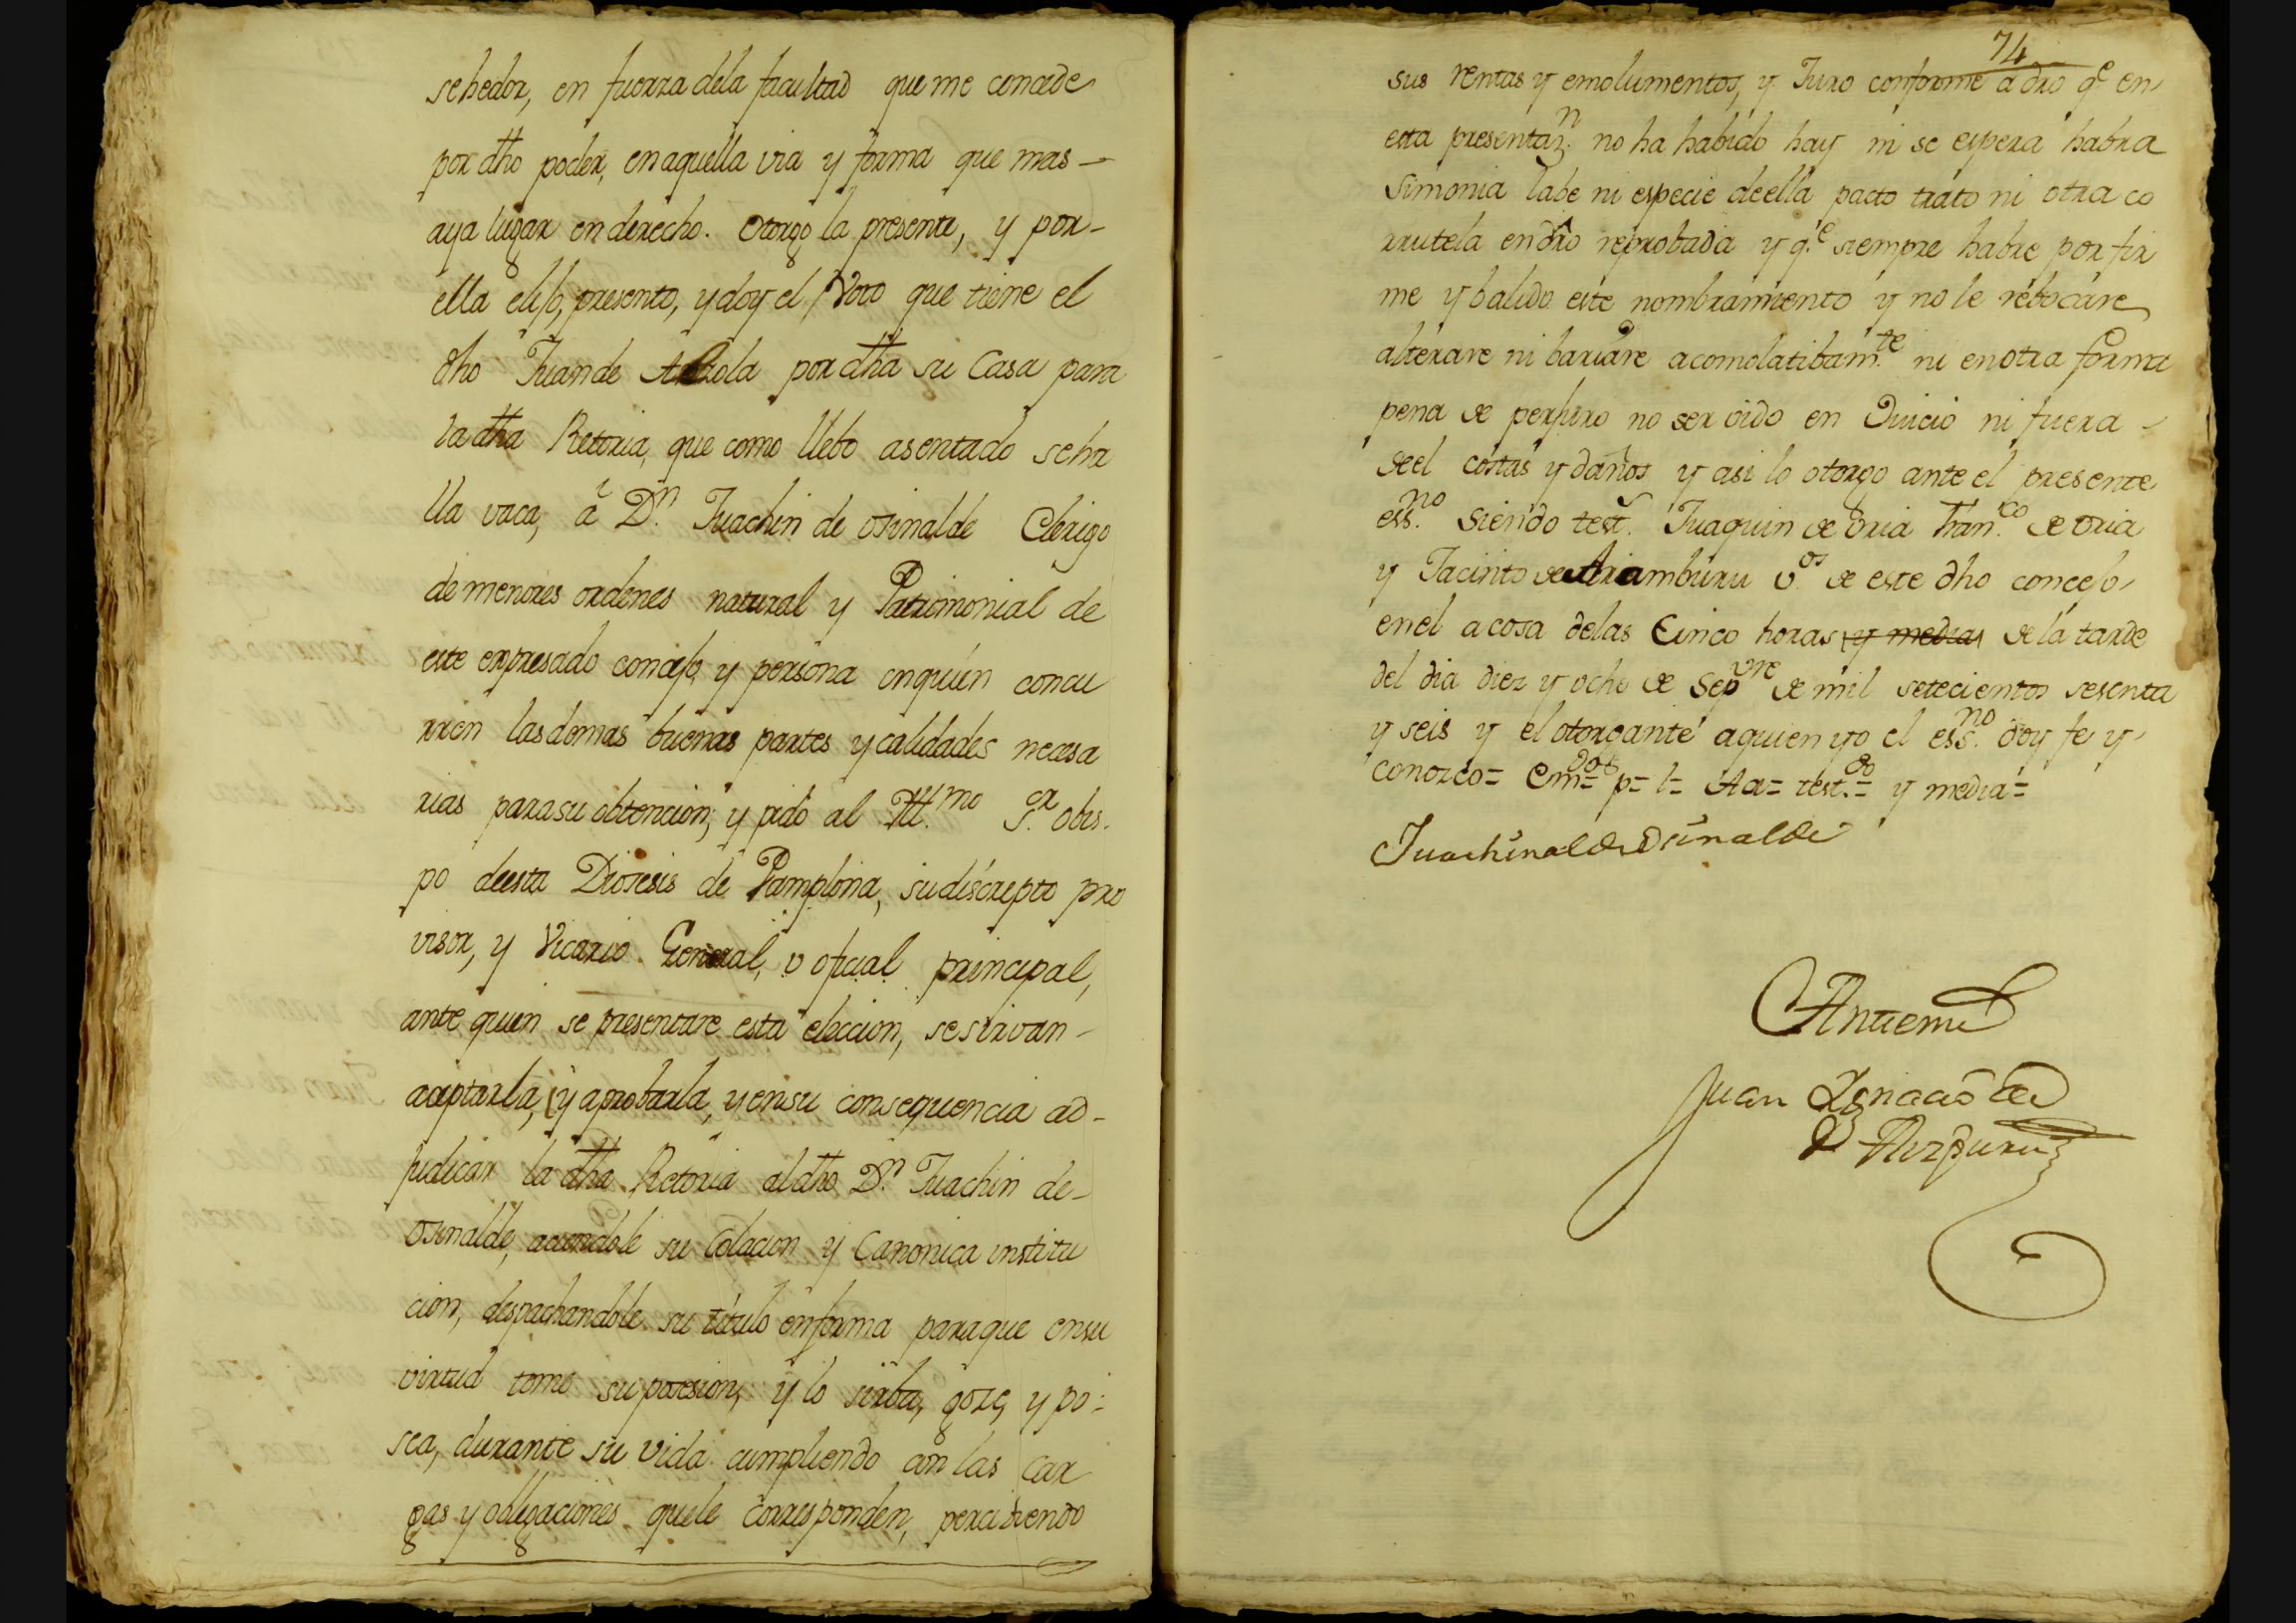 sehedor, en fuerza dela facultad que me concede
por dho poder, en aquella via y forma que mas
aya lugar en derecho. Otorgo la presente, y por-
ella elijo, presento, y doy el Voto que tiene el
dho Juan de por dha su Casa para
la dha Retoria, que como llebo asentado seha
lla vaca, â Dn. Juachin de osinalde Clerigo
de menores ordenes natural y Patrimonial de
este expresado concejo, y persona en quien concu
rren las demas buenas partes y calidades necesa
rias para su obtencion; y pido al Yll.mo S.or obis-
po deesta Diocesis de Pamplona, su discrepto pro
visor, y Vicario General, v oficial principal,
ante quien se presentare esta eleccion, se sirvan
aceptarla, y aprobarla, y ensu consequencia ad-
judicar la dha Retoria al dho Dn. Juachin de-
osinalde, aciendole su Colacion y Canonica institu
cion, despachandole su titulo enforma paraque ensu
virtud tome su posesion, y lo sirba, goze, y po-
sea, durante su vida cumpliendo con las car
gas y obligaciones quele corresponden, percibiendo
74
sus rentas y emolumentos, y Juro conforme a dro q.e en
esta presentaz.n no ha habido hay ni se espera habra
Simonia labe ni especie deella pacto trato ni otra co
rrutela en dro reprobada y q.e siempre habre por fir
me y balido este nombramiento y no le rebocare
alterare ni bariare acomolatibam.te ni en otra forma
pena de perjuro no ser oido en Juicio ni fuera
de el costas y daños y asi lo otorgo ante el presente
ess.no siendo test.s Juaquin de oria Fran.co de oria
y Jacinto de Aramburu v.os de este dho concejo
enel a cosa delas Cinco horas y media de la tarde
del dia diez y ocho de Sep.vre de mil setecientos sesenta
y seis y el otorgante aquien yo el ess.no doy fe y
conozco= Em.dos= p= l= Aa= test.do= y media=
Juachin de Osinalde
Antemi
Juan Ignacio de
Aizpuru